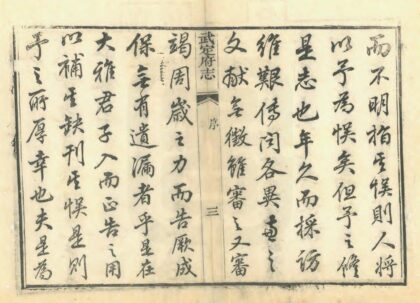 而不明指其悮則人將
以予為悮矣但予之修
是志也年久而採訪
維艱傳聞各異
文献無徵雖審之又審
武定府志
序
三
竭周歲之力而告厥成
保無有遺漏者乎是在
大雅君子入而正告之用
以補其缺刊其悮是則
予之所厚幸也夫是為